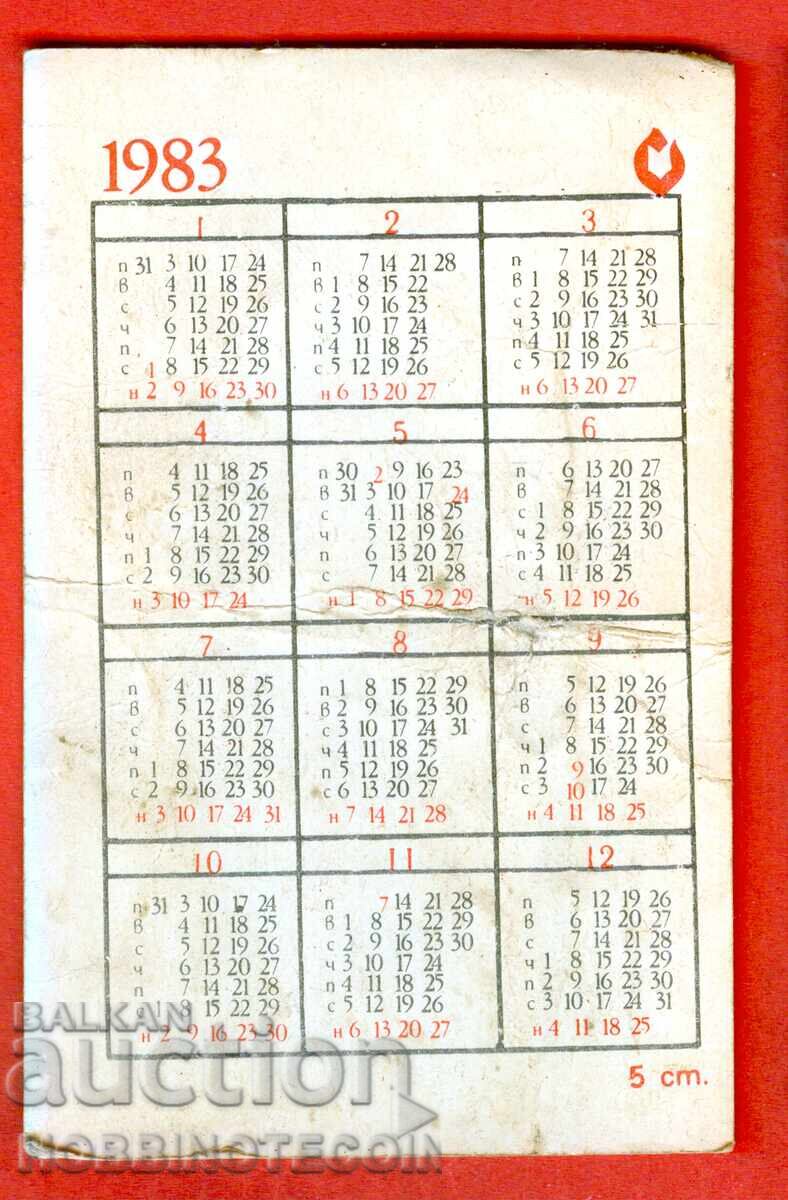 1983
1 2 3
п 31 3 10 17 24 п 7 14 21 28 п 7 14 21 28
в 4 11 18 25 в 1 8 15 22 в 1 8 15 22 29
с 5 12 19 26 с 2 9 16 23 с 2 9 16 23 30
ч 6 13 20 27 ч 3 10 17 24 ч 3 10 17 24 31
п 7 14 21 28 п 4 11 18 25 п 4 11 18 25
с 1 8 15 22 29 с 5 12 19 26 с 5 12 19 26
н 2 9 16 23 30 н 6 13 20 27 н 6 13 20 27
4 5 6
п 4 11 18 25 п 30 2 9 16 23 п 6 13 20 27
в 5 12 19 26 в 31 3 10 17 24 в 7 14 21 28
с 6 13 20 27 с 4 11 18 25 с 1 8 15 22 29
ч 7 14 21 28 ч 5 12 19 26 ч 2 9 16 23 30
п 1 8 15 22 29 п 6 13 20 27 п 3 10 17 24
с 2 9 16 23 30 с 7 14 21 28 с 4 11 18 25
н 3 10 17 24 н 1 8 15 22 29 н 5 12 19 26
7 8 9
п 4 11 18 25 п 1 8 15 22 29 п 5 12 19 26
в 5 12 19 26 в 2 9 16 23 30 в 6 13 20 27
с 6 13 20 27 с 3 10 17 24 31 с 7 14 21 28
ч 7 14 21 28 ч 4 11 18 25 ч 1 8 15 22 29
п 1 8 15 22 29 п 5 12 19 26 п 2 9 16 23 30
с 2 9 16 23 30 с 6 13 20 27 с 3 10 17 24
н 3 10 17 24 31 н 7 14 21 28 н 4 11 18 25
10 11 12
п 31 3 10 17 24 п 7 14 21 28 п 5 12 19 26
в 4 11 18 25 в 1 8 15 22 29 в 6 13 20 27
с 5 12 19 26 с 2 9 16 23 30 с 7 14 21 28
ч 6 13 20 27 ч 3 10 17 24 ч 1 8 15 22 29
п 7 14 21 28 п 4 11 18 25 п 2 9 16 23 30
8 15 22 29 с 5 12 19 26 с 3 10 17 24 31
н 2 9 16 23 30 н 6 13 20 27 н 4 11 18 25
5 ст.
BALKAN
auction
HOBBINOTECOIN